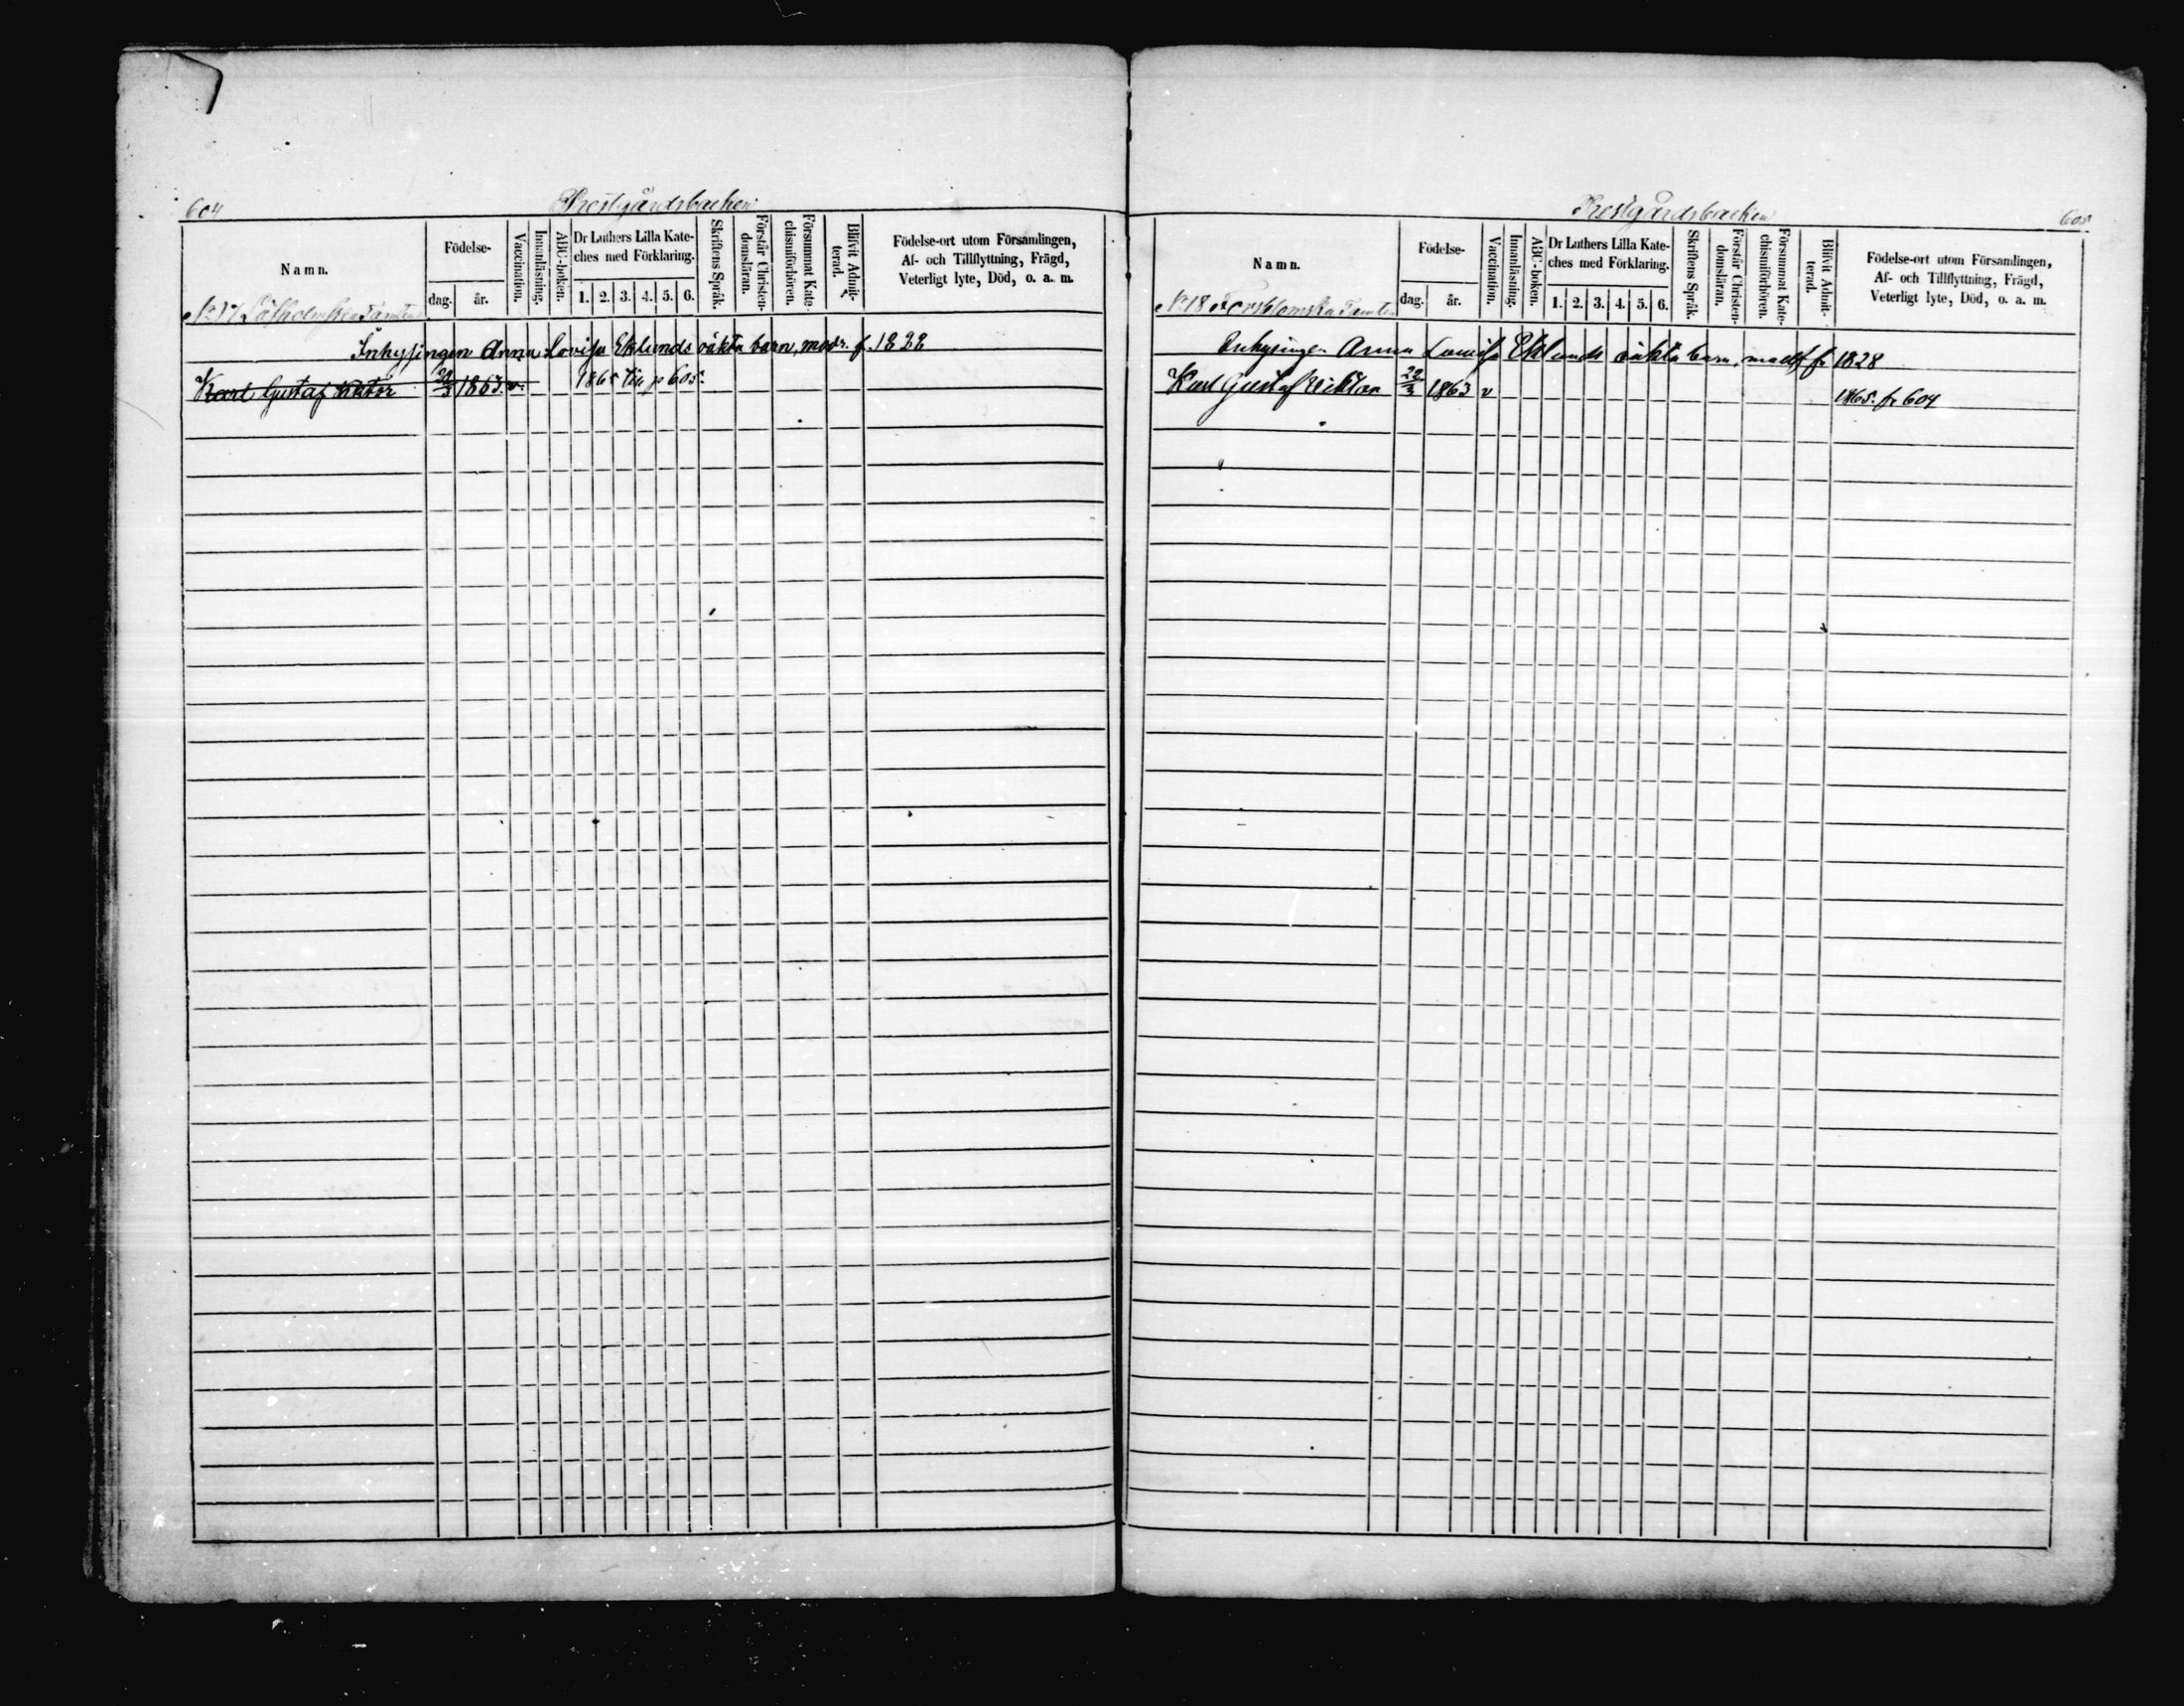 604 Prestgårdsbacken
Namn.
Födelse-
dag. år.
Vaccination.
Innanläsning.
ABC-boken.
Dr Luthers Lilla Kate-
ches med Förklaring.
1. 2. 3. 4. 5. 6.
Skriftens Språk.
Förstår Christen-
domsläran.
Försummat Kate-
chismiförhören.
Blifvit Admit-
terad.
Födelse-ort utom Församlingen,
Af- och Tillflyttning, Frägd,
Veterligt lyte, Död, o. a. m.
No 17 Löfholmska Tomten
Inhysingen Anna Lovisa Eklunds oäkta barn, modr. f. 1828
Karl Gustaf Viktor 22/3 1863. v. 1865 till p 605.
Prestgårdsbacken 605.
Namn.
Födelse-
dag. år.
Vaccination.
Innanläsning.
ABC-boken.
Dr Luthers Lilla Kate-
ches med Förklaring.
1. 2. 3. 4. 5. 6.
Skriftens Språk.
Förstår Christen-
domsläran.
Försummat Kate-
chismiförhören.
Blifvit Admit-
terad.
Födelse-ort utom Församlingen,
Af- och Tillflyttning, Frägd,
Veterligt lyte, Död, o. a. m.
No 18 Forsblomska Tomten
Inhysingen Anna Lovisa Eklunds oäkta barn, 1828
Karl Gustaf Viktor 22/3 1863 v 1865. fr 604